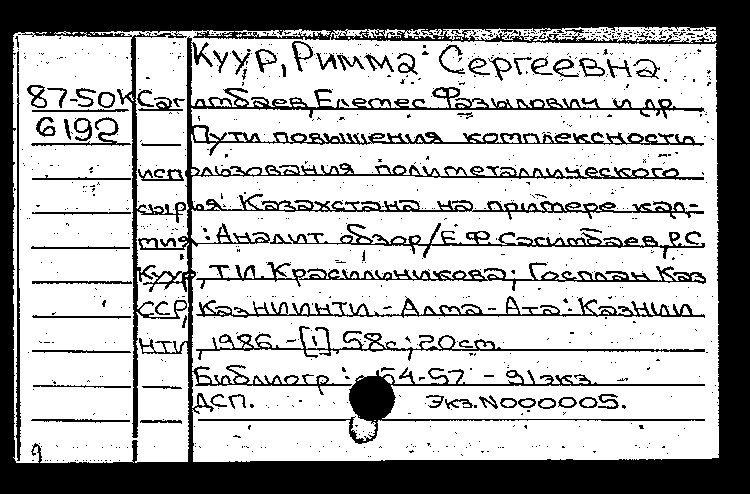 Куур, Римма Сергеевна
87-50К Сагимбаев, Елемес Фазылович и др.
6192 Пути повышения комплексности
использования полиметаллического
сырья Казахстана на примере кад-
мия: Аналит. обзор/Е.Ф. Сагимбаев, Р.С.
Куур, Т.И. Красильникова; Госплан Каз
ССР, КазНИИНТИ. - Алма-Ата: КазНИИ
НТИ, 1986. - [1], 58с; 20см.
Библиогр.: с 54-57 - 91экз.
ДСП. Экз.N000005.